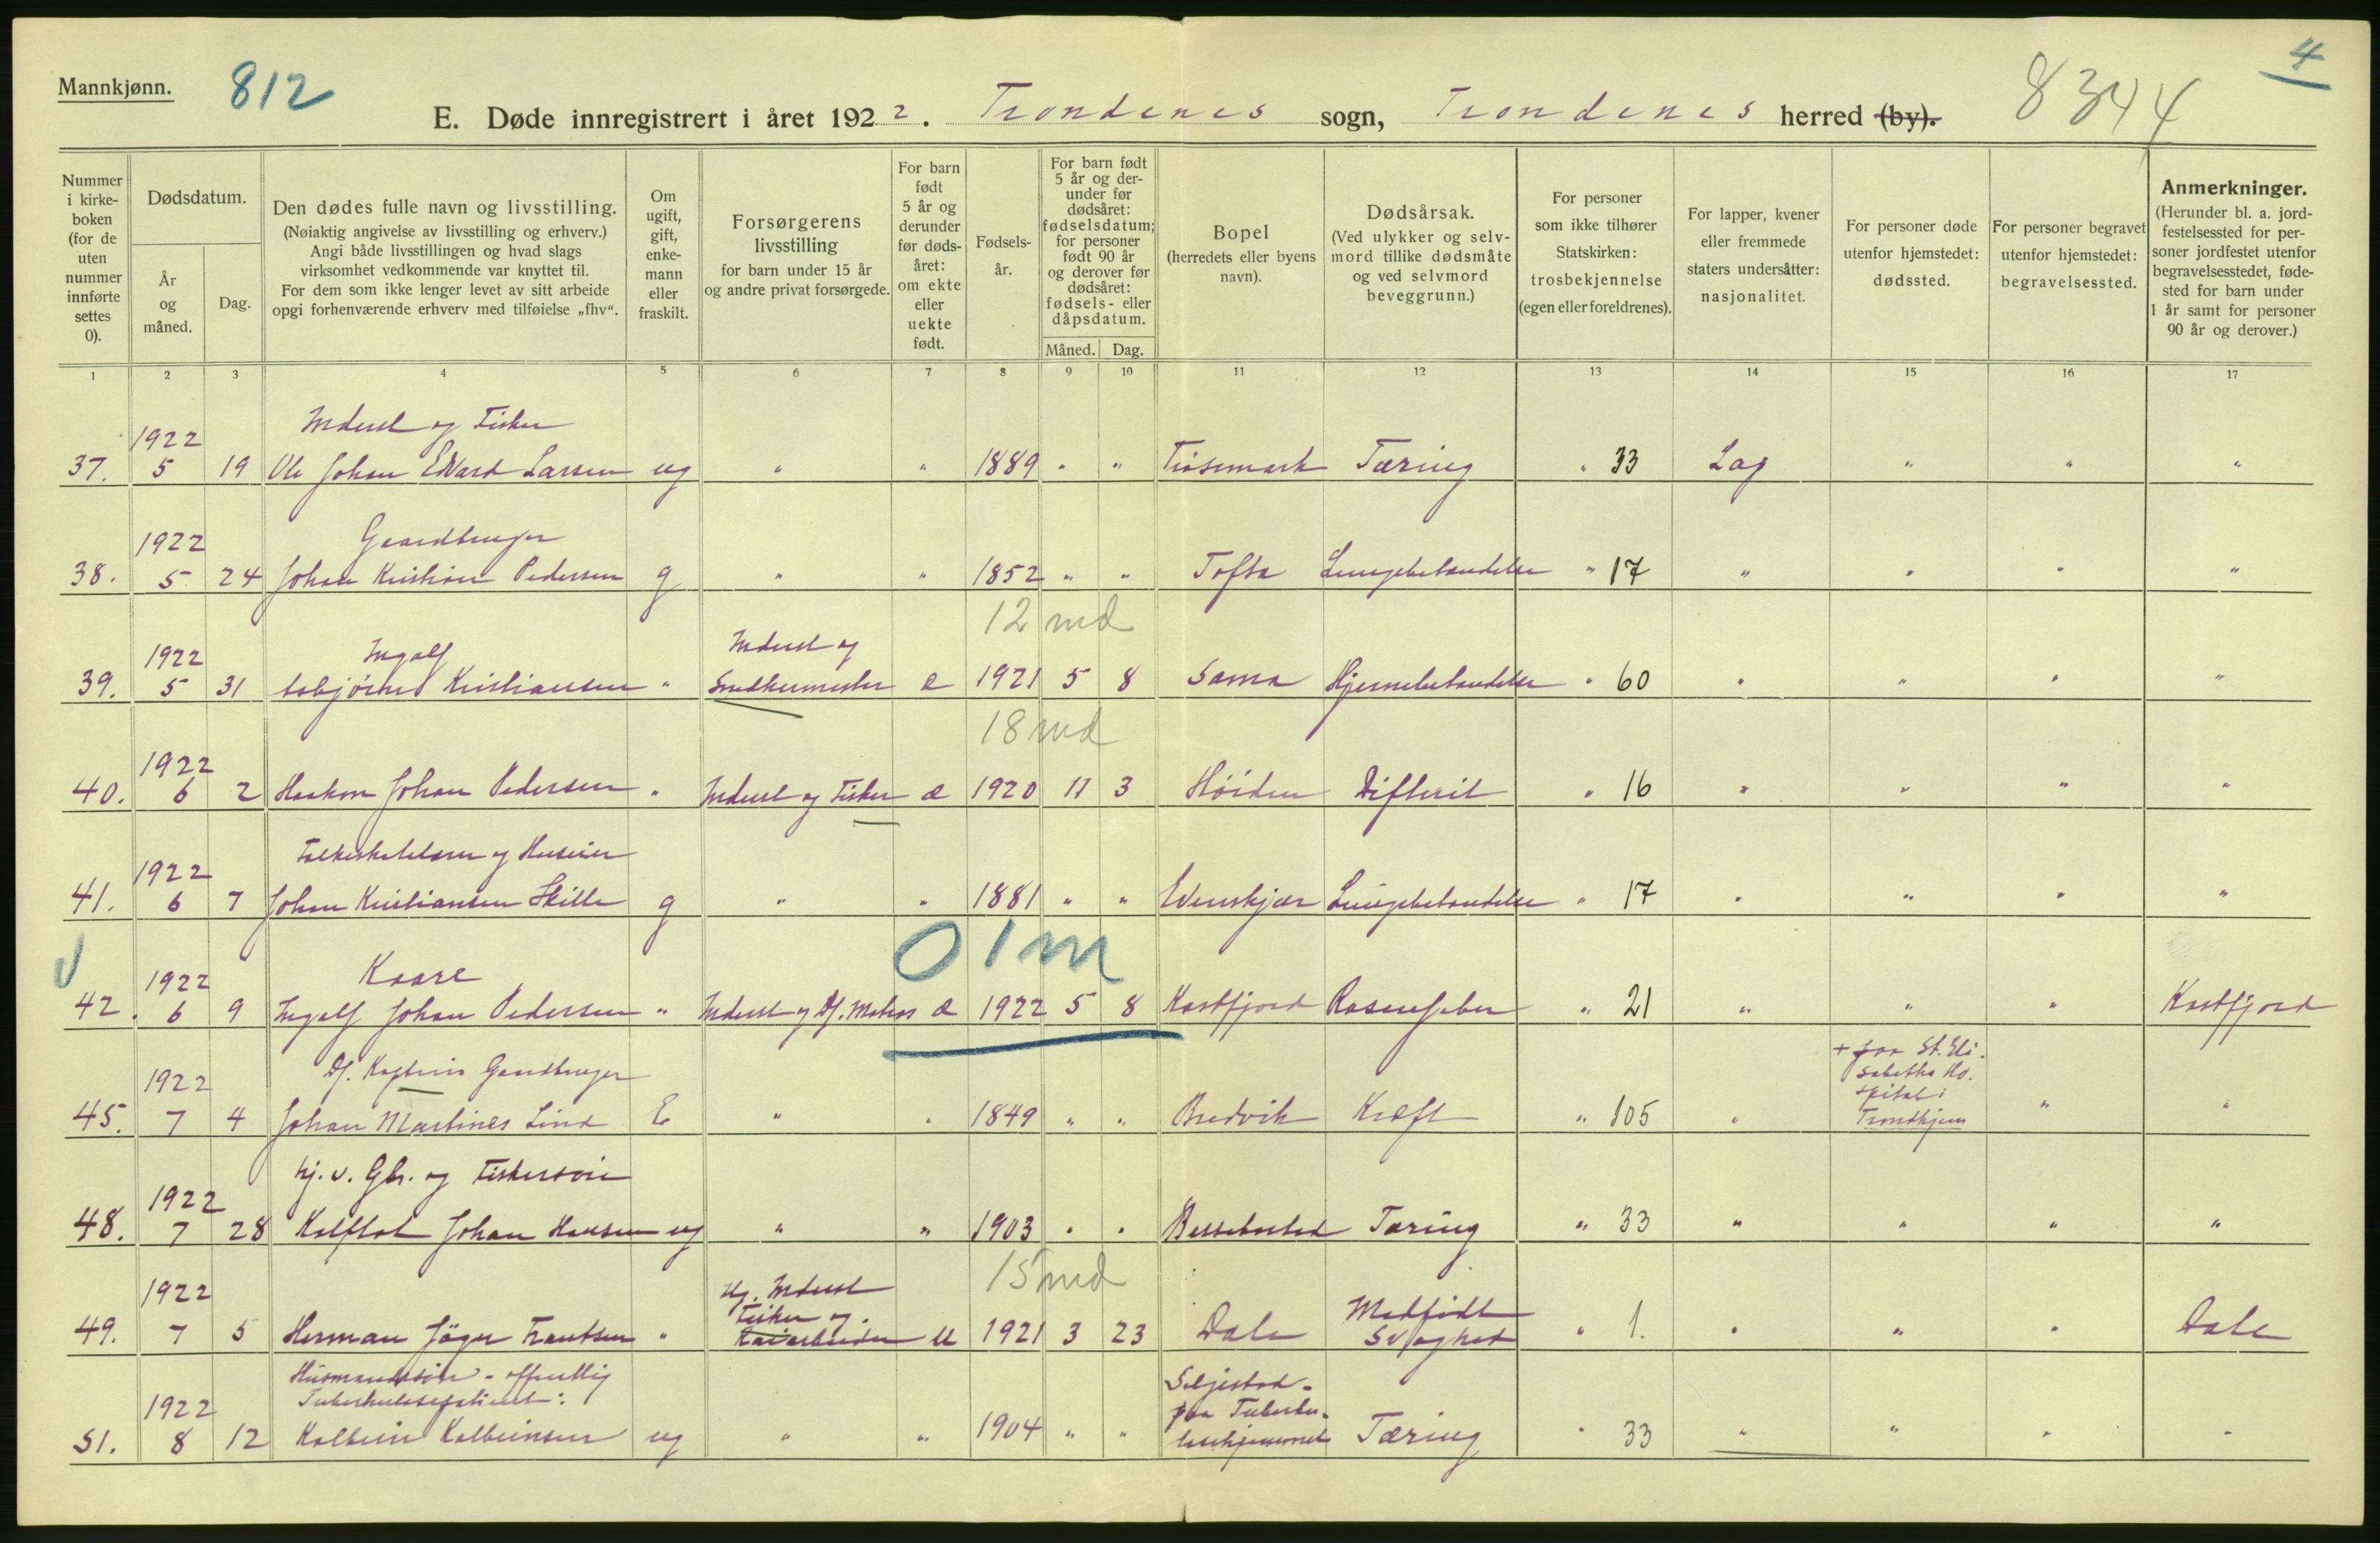 Mannkjønn.
812
4
8344
E. Døde innregistrert i året 1922. Trondenes sogn, Trondenes herred (by).
Nummer i kirke-boken (for de uten nummer innførte settes 0).
Dødsdatum.
År og måned.
Dag.
Den dødes fulle navn og livsstilling.
(Nøiaktig angivelse av livsstilling og erhverv.)
Angi både livsstillingen og hvad slags
virksomhet vedkommende var knyttet til.
For dem som ikke lenger levet av sitt arbeide
opgi forhenværende erhverv med tilføielse „fhv“.
Om ugift, gift, enke-mann eller fraskilt.
Forsørgerens livsstilling
for barn under 15 år
og andre privat forsørgede.
For barn født 5 år og derunder før døds-året: om ekte eller uekte født.
Fødsels-år.
For barn født 5 år og der-under før dødsåret: fødselsdatum; for personer født 90 år og derover før dødsåret: fødsels- eller dåpsdatum.
Måned. Dag.
Bopel
(herredets eller byens navn).
Dødsårsak.
(Ved ulykker og selv-mord tillike dødsmåte og ved selvmord beveggrunn.)
For personer som ikke tilhører Statskirken: trosbekjennelse (egen eller foreldrenes).
For lapper, kvener eller fremmede staters undersåtter: nasjonalitet.
For personer døde utenfor hjemstedet: dødssted.
For personer begravet utenfor hjemstedet: begravelsessted.
Anmerkninger.
(Herunder bl. a. jord-festelsessted for per-soner jordfestet utenfor begravelsesstedet, føde-sted for barn under 1 år samt for personer 90 år og derover.)
1 2 3 4 5 6 7 8 9 10 11 12 13 14 15 16 17
Inderst og Fisker
1922
37. 5 19 Ole Johan Edvard Larsen ug " " 1889 " " Tæring " 33 Lap " " "
Gaardbruger
1922
38. 5 24 Johan Kristian Pedersen g " " 1852 " " Tofta Lungebetændelse " 17 " " " "
12 md
1922 Ingolf Inderst og
39. 5 31 Asbjørn Kristiansen " Snedkermester e 1921 5 8 Sama Hjernebetændelse " 60 " " " "
18 md
1922
40. 6 2 Haakon Johan Pedersen " Inderst og Fisker e 1920 11 3 Høiden Difterit " 16 " " " "
Folkeskolelærer og Huseier
1922
41. 6 7 Johan Kristiansen Hille g " " 1881 " " Evenskjær Lungebetændelse " 17 " " " "
0 1 m
1922 Kaare
42. 6 9 Ingolf Johan Pedersen " Inderst og Df. Matros e 1922 5 8 Kastfjord Rosenfeber " 21 " " " Kastfjord
Df. Kaptein Gaardbruger
1922
45. 7 4 Johan Martines Lind E " " 1849 " " Bredvik Kræft " 105 " + paa St. Eli-
sabeths Ho-
spital i
Trondhjem " "
hj. v. Gbr. og Fiskersøn
1922
48. 7 28 Johan Hansen ug " " 1903 " " Bessebostad Tæring " 33 " " " "
15 md
1922 Ug. Inderst
Fisker og
49. 7 5 Herman Jäger Frantsen " u 1921 3 23 Dale Medfødt
Svaghed " 1. " " " Dale
Husmandssøn - offentlig
Tuberkulosepatient:
1922
51. 8 12 Kolbein Kolbeinsen ug " " 1904 " " Seljestad -
paa Tuberku-
losehjemmet Tæring " 33 " " " "